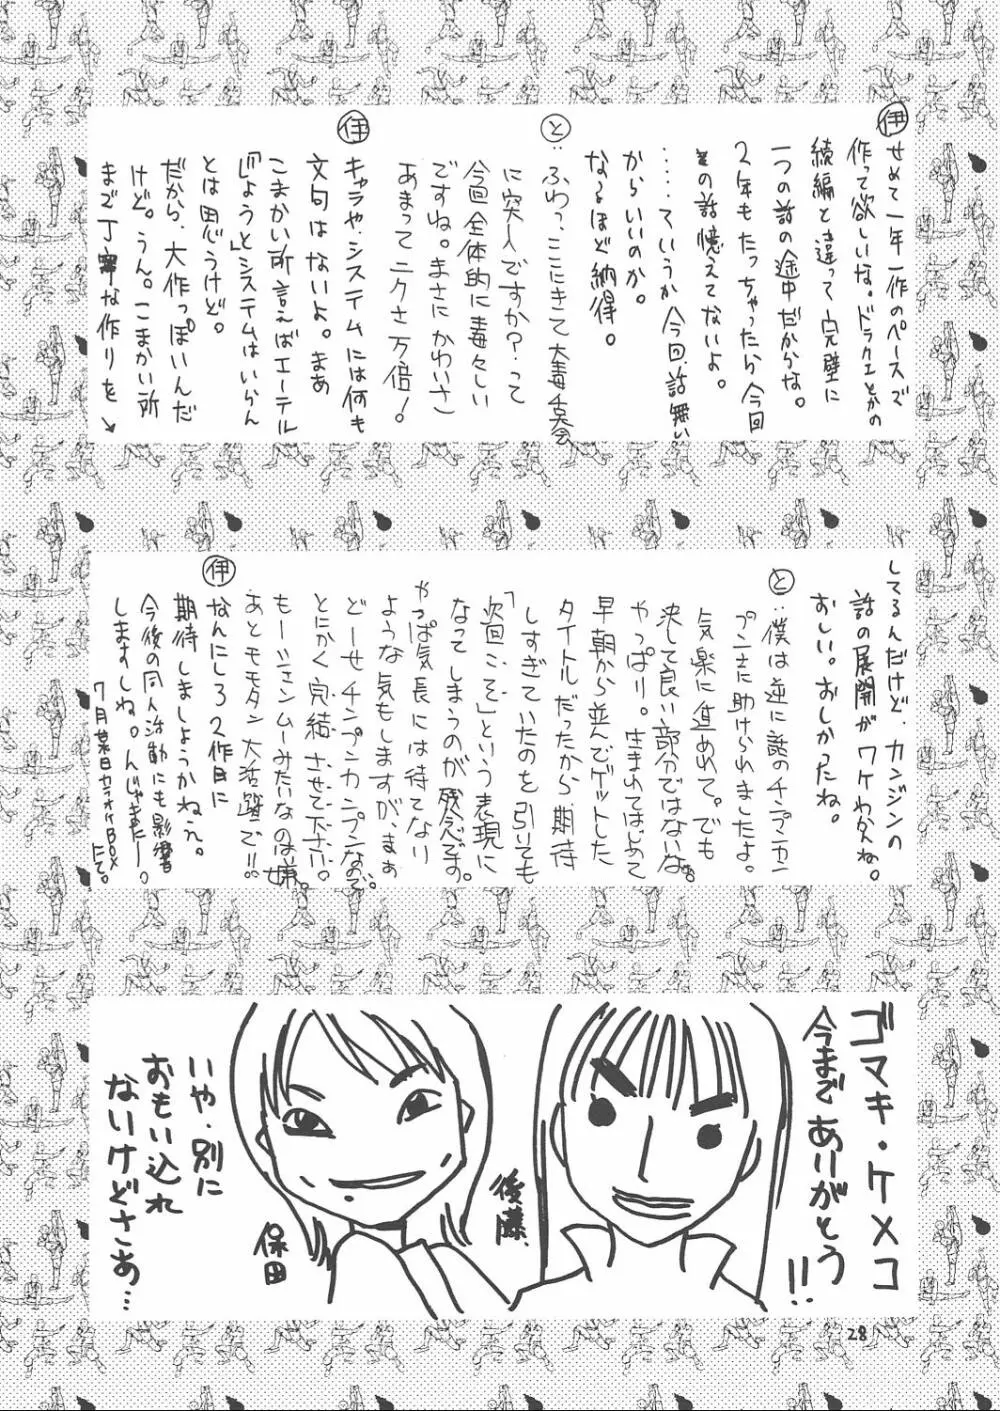 伊 せめて一年一作のペースで
作って欲しいな。ドラクエとかの
続編と違って完璧に
一つの話の途中だからな。
2年もたっちゃったら今回
の話憶えてないよ。
……ていうか今回、話無い
からいいのか。
なるほど納得。
と:ふわっ、ここにきて大毒舌大会
に突入ですか?って
今回全体的に毒々しい
ですね。まさにかわいさ
あまってニクさ万倍!
伊 キャラや、システムには何も
文句はないよ。まあ
こまかい所言えばエーテル
「じょうと」システムはいらん
とは思うけど。
だから、大作っぽいんだ
けど。うん。こまかい所
まで丁寧な作りを↘
してるんだけど、カンジンの
話の展開がワケわかんね。
おしい。おしかったね。
と:僕は逆に話のチンプンカン
プンさに助けられましたよ。
気楽に進めて。でも
決して良い部分ではないな。
やっぱり。生まれてはじめて
早朝から並んでゲットした
タイトルだったから期待
しすぎていたのを引いても
「次回こそ」という表現に
なってしまうのが残念です。
やっぱ気長には待てなり
ような気もしますが、まぁ
どーせチンプンカンプンなので。
とにかく完結させて下さい。
もーシェンムーみたいなのは嫌。
あとモモタン大活躍で!!
伊 なんにしろ2作目に
期待しましょうかねぇ。
今後の同人活動にも影響
しますしね。んじゃまたー。
7月某日カラオケBOXにて。
ゴマキ・ケメコ
今まであいがとう!!
後藤
保田
いや、別に
おもい込れ
ないけどさあ…
28